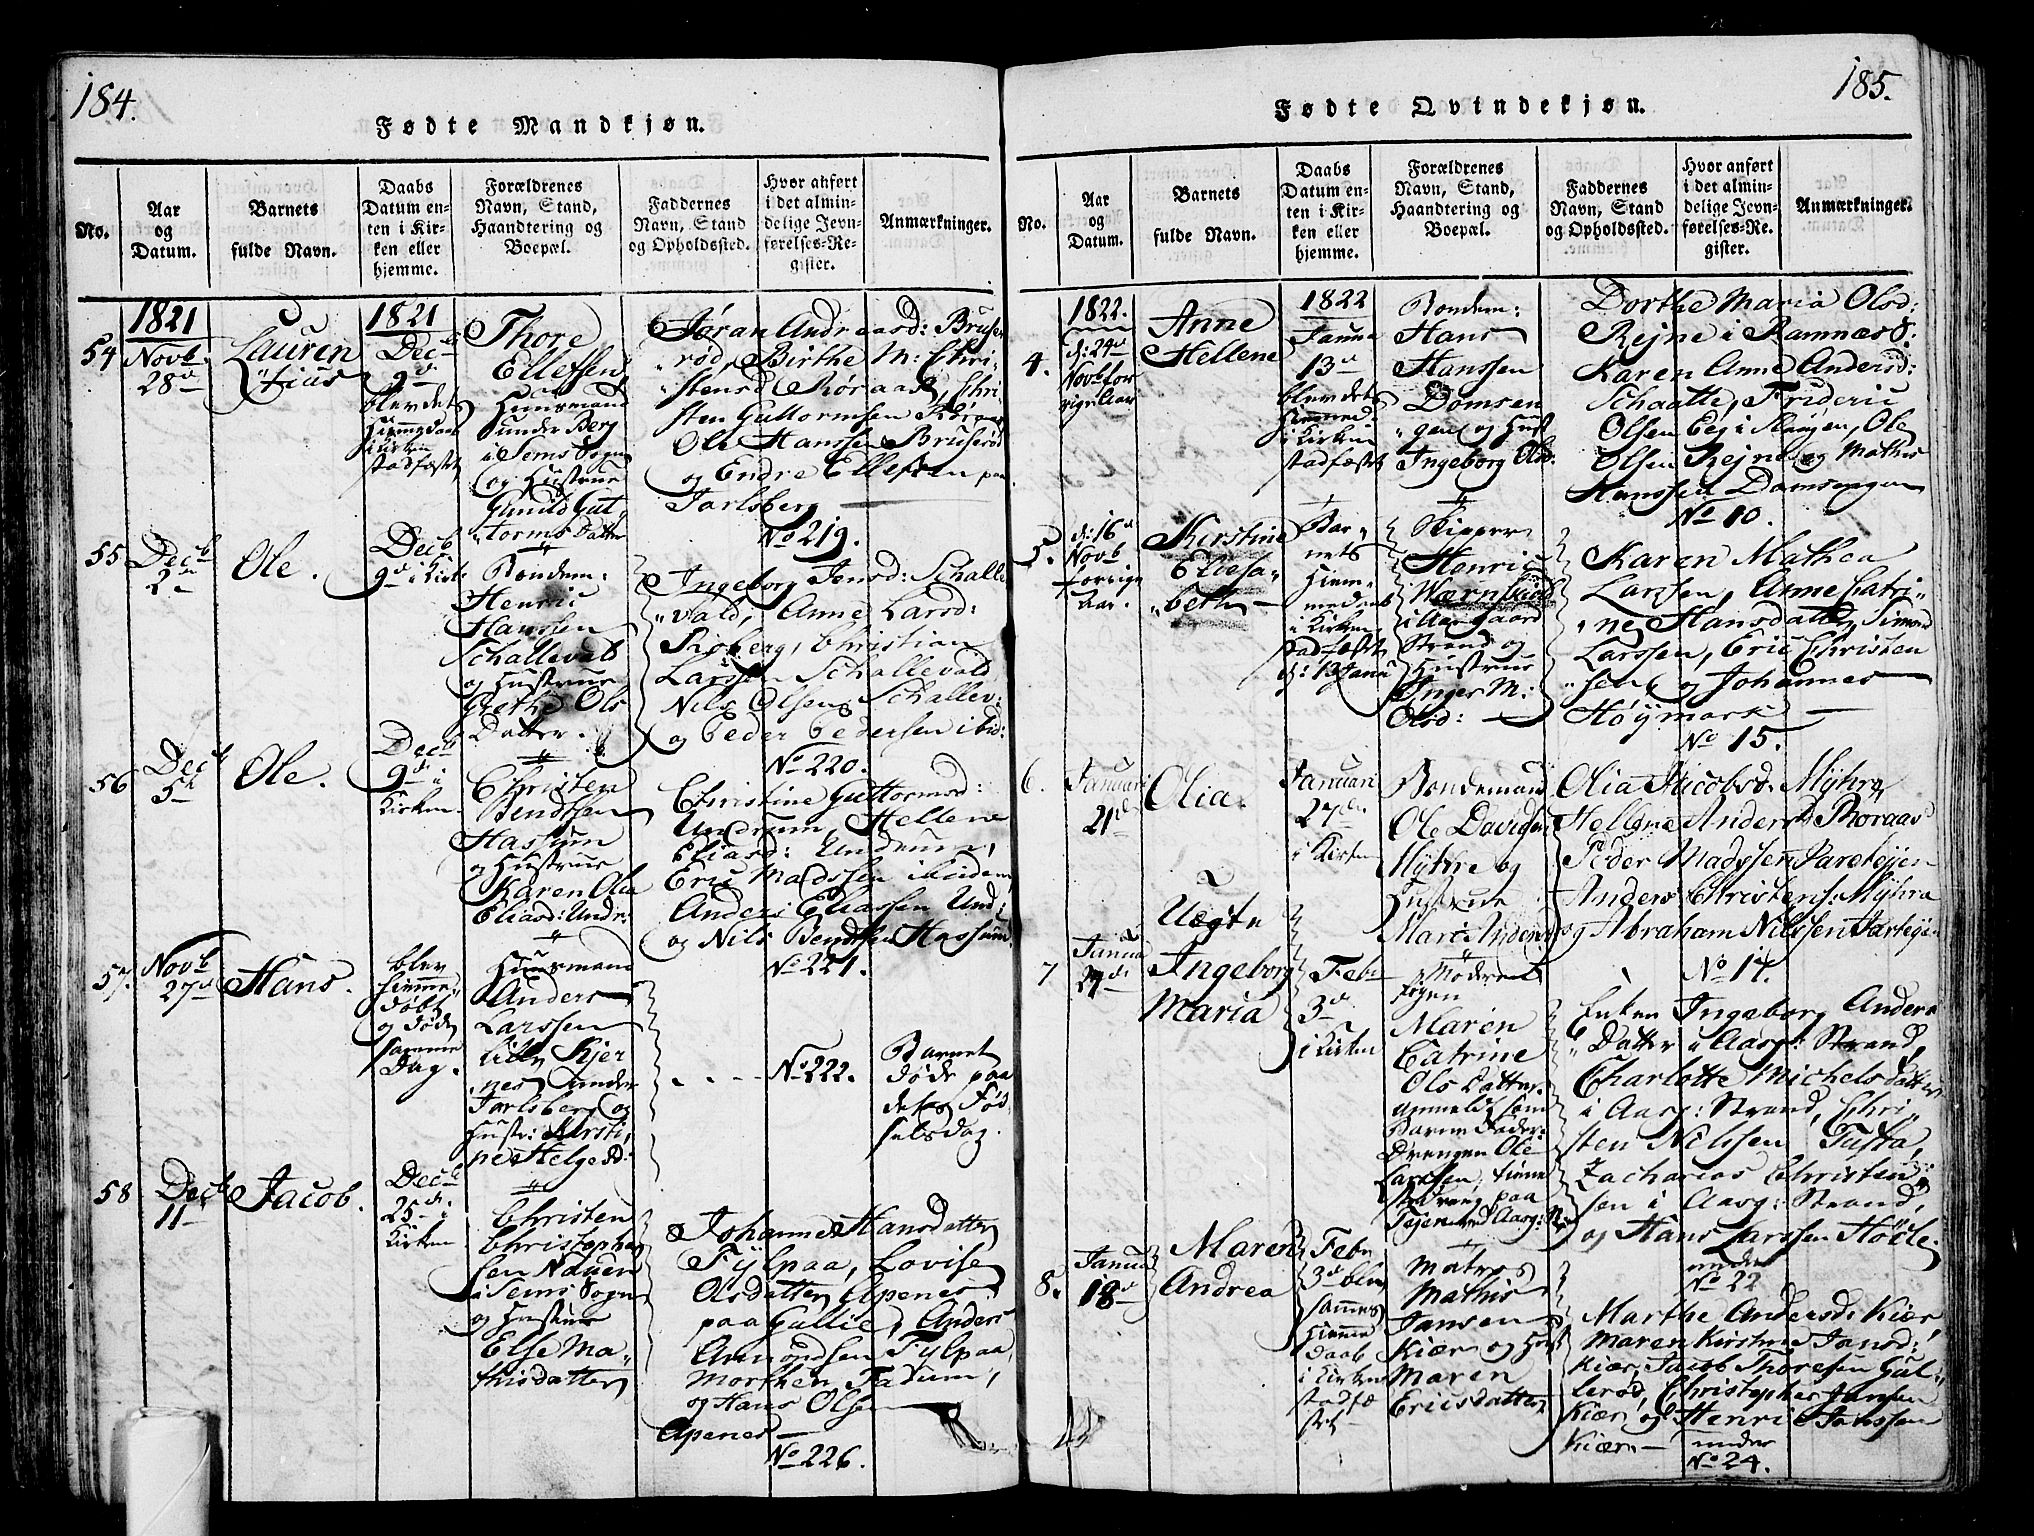 184.
Fødte Mandkjøn.
No.
Aar
og
Datum.
Barnets
fulde Navn.
Daabs
Datum en-
ten i Kir-
ken eller
hjemme.
Forældrenes
Navn, Stand,
Haandtering og
Boepæl.
Faddernes
Navn, Stand
og Opholdssted.
Hvor anført
i det almin-
delige Jevn-
førelses-Re-
gister.
Anmærkninger.
1821
54
Novb.
28d
Lauren
"tius
1821
Decb
9d
blev dets
Hiemmedaab
i Kirken
stadfæstet
Thore
Ellefsen
Huusmand
under Berg
i Sems Sogn
og Hustrue
Gunild Gut-
torms Datter
Jøran Andreasd: Bruse
rød, Birthe M: Chri
stensd Roraas, Chri
sten Guttormsen
Ole Hanssen Bruserød
og Endre Ellefsen paa
Jarlsberg
No 219.
55
Decb
2d
Ole.
Decb
9d i Kirk:
Bondem:
Henric
Hanssen
Schallevald
og Hustrue
Grethe Ols
Datter.
Ingeborg Jensd: Schalle
"vald, Anne Larsd:
Roberg, Christian
Larssen Schallevald
Nils Olsen Schallev:
og Peder Pedersen ibid:
No 220.
56
Decb
5d
Ole.
Decb
9d i
Kirken
Christen
Bendtsen
Hassum
og Hustrue
Karen Olea
Eliasd: Undr:
Christine Guttormsd:
Undrum, Hellene
Eliasd: Undrum,
Eric Madssen ibidem,
Anders Eliassen Und:
og Nils Bendtsen Hassum
No 221.
57.
Novb
27d
Hans.
blev
hiemme
døbt
og døde
samme
Dag.
Huusmand
Anders
Larssen
Lille Kjer
nes under
Jarlsberg og
Hustr: Kirsti,
ne Helgesd:
No 222.
Barnet
døde paa
dets Fød
selsdag.
58
Decb
11
Jacob.
Decb
25d i
Kirken
Christen
Christopher
sen Nauen
i Sems Sogn
og Hustrue
Else Ma-
thisdatter
Johanne Hansdatter
Fylpaa, Lovise
Olsdatter Apenes
paa Gullie, Anders
Amundsen Fylpaa,
Morthen Fadum,
og Hans Olsen
Apenes
No 226.
185.
Fødte Qvindekjøn.
No.
Aar
og
Datum.
Barnets
fulde Navn.
Daabs
Datum en-
ten i Kir-
ken eller
hjemme.
Forældrenes
Navn, Stand,
Haandtering og
Boepæl.
Faddernes
Navn, Stand
og Opholdssted.
Hvor anført
i det almin-
delige Jevn-
førelses-Re-
gister.
Anmærkninger.
1822.
4.
d: 24d
Novb for
rige Aar
Anne
Hellene
1822
Janua
13d
blev dets
i Kirken
stadfæstet
Bondem:
Hans
Hanssen
Domsen
gen og Hust
Ingeborg Olsd.
Dorthe Maria Olsd:
Rejne i Ramnæs S:
Karen Anne Andersd:
Schaatte, Frideric
Olsen Eeg i Slangen, Ole
Olsen Rejne og Mathis
Hanssen Domsengen
No 10.
5.
d: 16d
Novb
forrige
Aar.
Kirstine
Eliesa-
"beth
Bar-
nets
Hiem-
medaab
i Kirken
stadfæstet
d: 13 Janu
Skipper
Henric
Wærnskiold
i Aasgaard
Strand og
Hustrue
Inger M:
Olsd:
Karen Mathea
Larssen, Anne Catri-
"ne Hansdatter, Simon
Larssen, Eric Christen
"sen og Johannes
Høymark
No 15.
6.
Januari
21d
Olia.
Januari
27d
i Kirken
Bondemand
Ole Davidsen
Myhre og
Hustrue
Mari Andersd
Olia Jacobsd. Myhre
Hellene Andersd. Roraas
Peder Madssen Jaretejen
Anders Christens: Myhre
og Abraham Nilssen Jartejen
No 17.
7
Janua
Uægte
Ingeborg
Maria
Feb:
3d
i Kirken
Møderne
Pigen
Maren
Catrine
Ols Datter
anmeldt som
Barne Fader:
Drengen Ole
Larssen, tiene
ste Dreng paa
Enken Ingeborg Anders
" Datter i Aasg: Strand,
Charlotte Michels datter
i Aasg: Strand, Chri-
sten Nilssen Tufta,
Zacharias Christen
sen i Aasg: Strand,
og Hans Larssen
under
No 22
8.
Janua
18d
Maren
Andrea
Febr
3d blev
sammes
Hiemme
daab
i Kirken
stadfæ
stet
Matros
Mathis
Jansen
Kiær og Hust
Maren
Ericsdatter
Marthe Andersd: Kiær,
Maren Kirstine Jansd:
Kiær, Jacob Thoresen Gul-
lerød, Christopher Jansen
Kiær, og Henric Jahnsen
Kiær.
under
No 24.